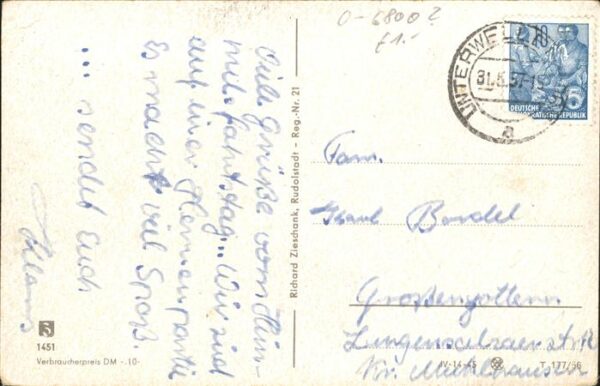 O-6800?
£1.-
Viele Grüße vom Him-
melfahrtstag. Wir sind
auf einer Herrenpartie
Es macht viel Spaß.
... sendet Euch
Klaus
Richard Zieschank, Rudolstadt – Reg.-Nr. 21
UNTERWELLENBORN
31.5.57-15
a
DEUTSCHE
DEMOKRATISCHE REPUBLIK
Fam.
Karl
Großengottern
Langensalzaer Str.
Kr. Mühlhausen
1451
Verbraucherpreis DM -.10-
IV-14-45
T 177/56